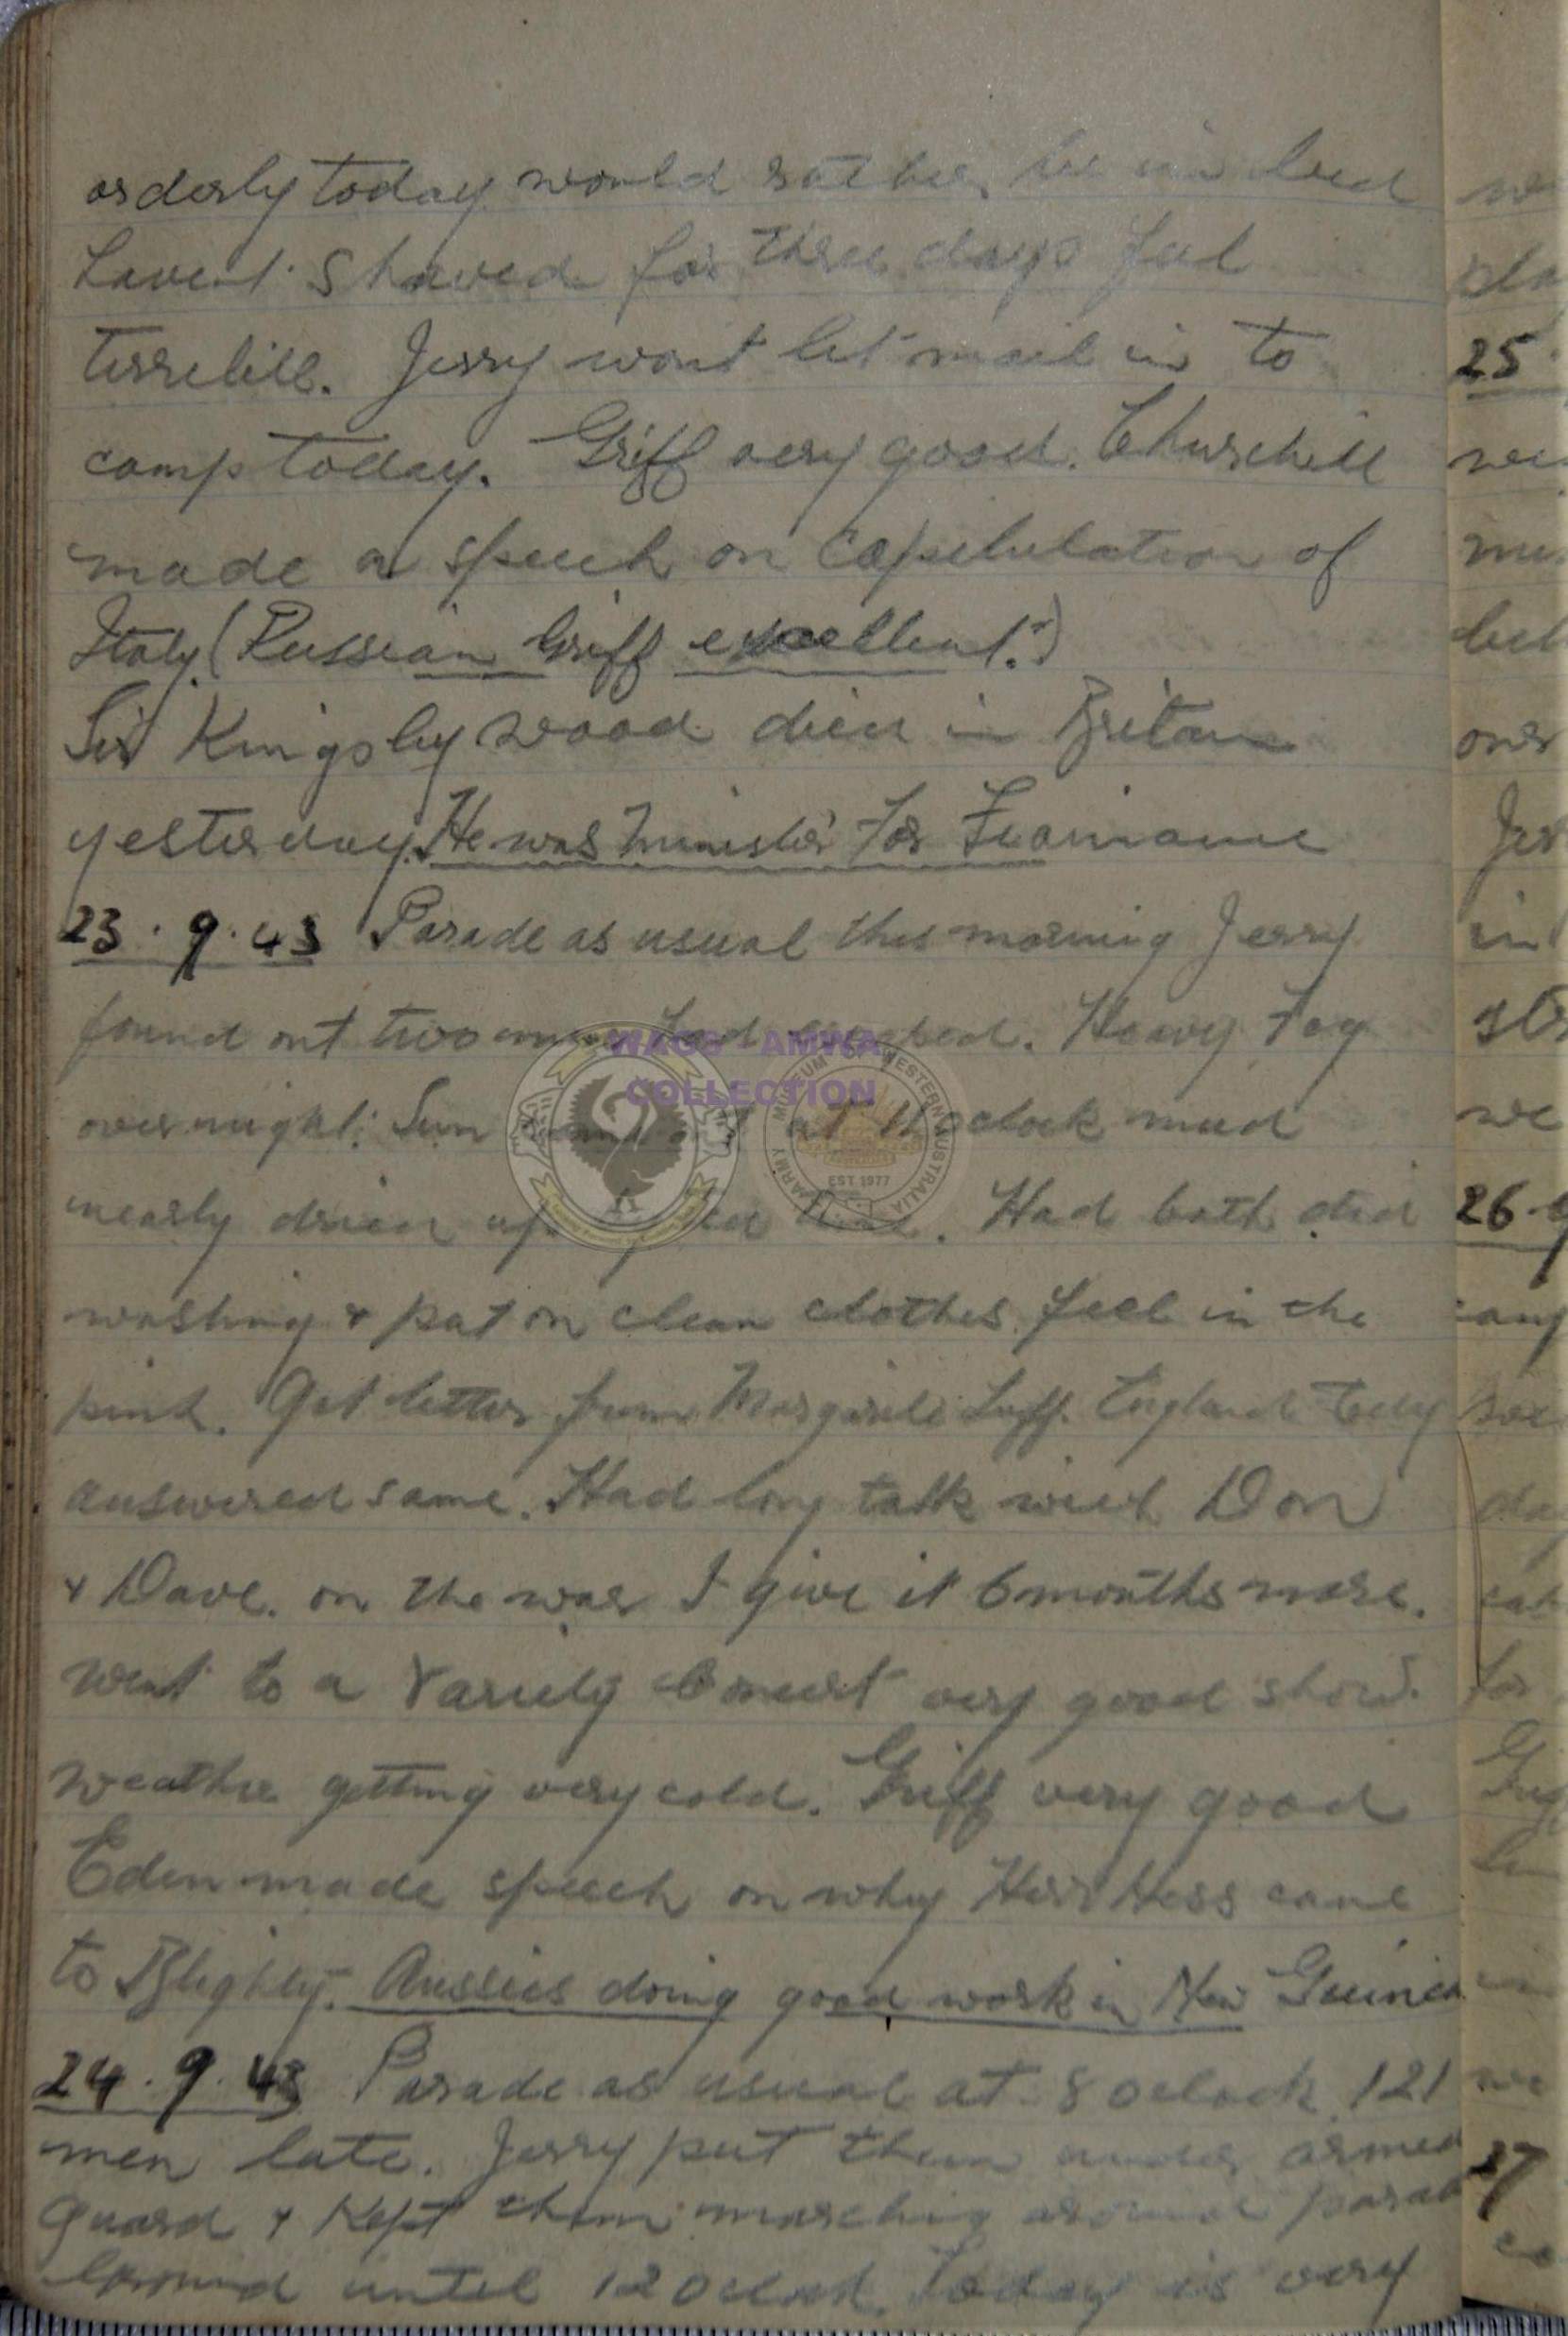 orderly today would rather be in bed
havent shaved for three days feel
terrebill. Jerry wont let mail in to
camp today. Griff very good. Churchill
made a speech on capitulation of
Italy. (Russian Griff excellent.)
Sir Kingsley Wood died in Britan
yesterday. He was minister for
23.9.43 Parade as usual this morning Jerry
found out two men had escaped. Heavy Fog
overnight. Sun came out at 11 oclock mud
nearly dried up. Had bath did
washing & put on clean clothes feel in the
pink. Got letter from Luff. England
answered same. Had long talk with Don
& Dave. on the war I give it 6 months more.
Went to a Variety Concert very good show.
Weather getting very cold. Griff very good
Eden made speech on why Herr Hess came
to Blighty. Aussies doing good work in New Guinea
24.9.43 Parade as usual at 8 oclock. 121
men late. Jerry put them under armed
guard & kept them marching around parade
Ground until 12 oclock. Today is very
25
26
27
WAGS AMWA
COLLECTION
ARMY MUSEUM OF WESTERN AUSTRALIA
EST 1977